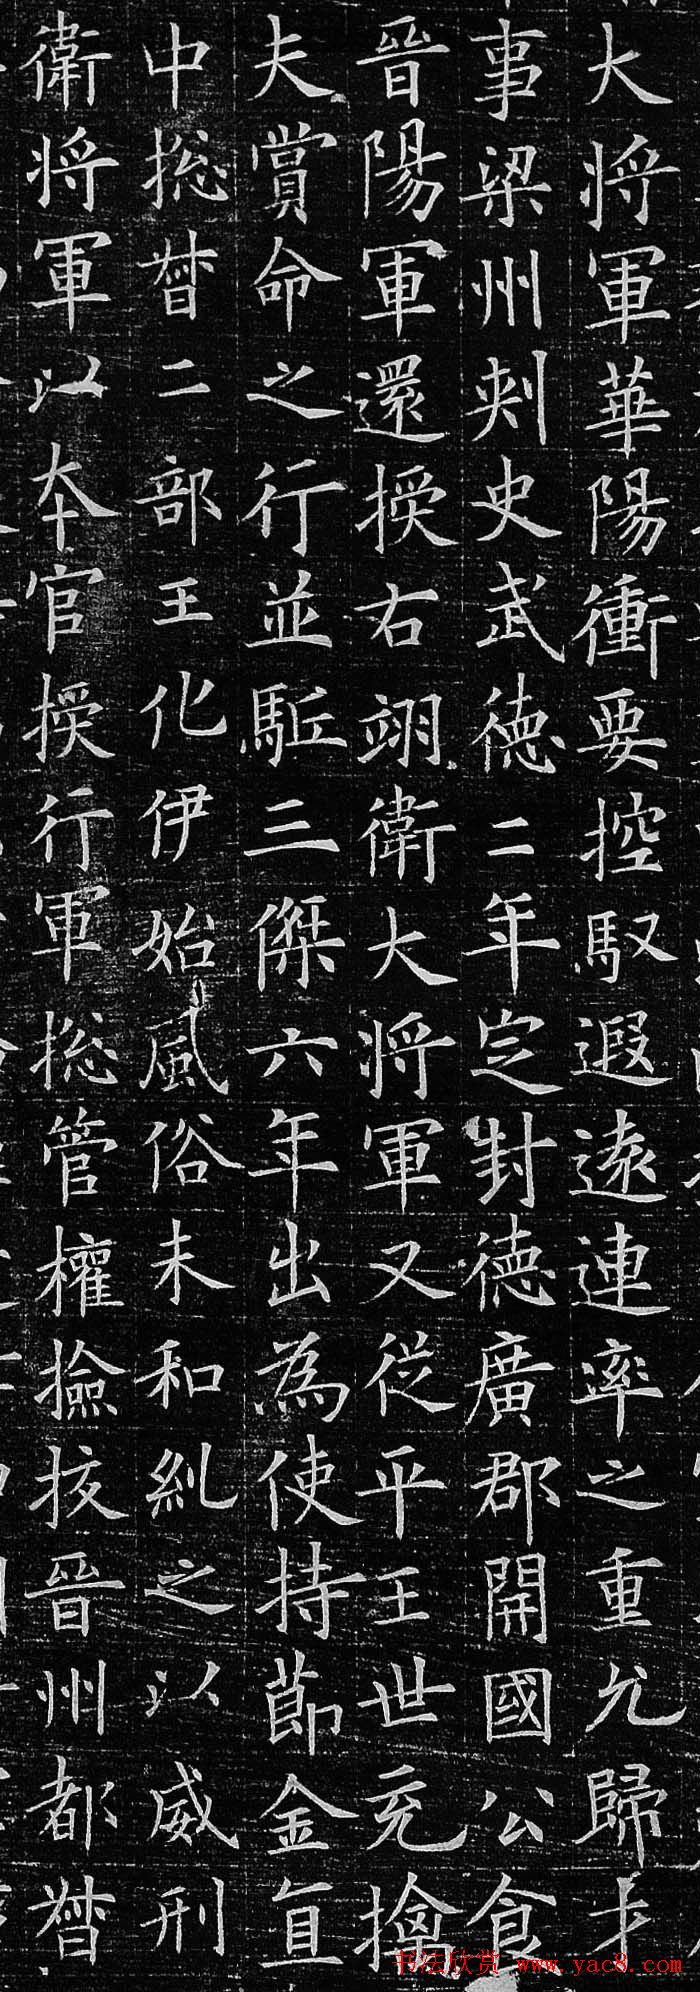 大將軍華陽衝要控馭遐遠連率之重允歸才
事梁州刺史武德二年定封德廣郡開國公食
晉陽軍還授右翊衛大將軍又從平王世充擒
夫賞命之行並駈三傑六年出為使持節金直
中揔督二部王化伊始風俗未和糺之以威刑
衛將軍以本官授行軍揔管權撿挍晉州都督
书法欣赏 www.yac8.com